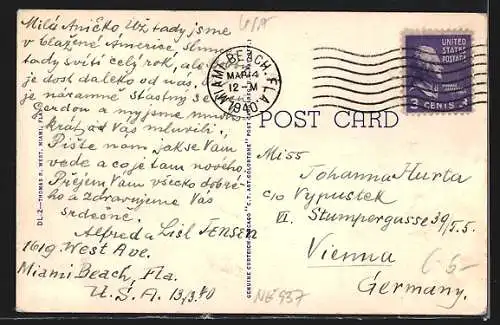 Milá Aničko Už tady jsme
v blažené Americe Slunce
tady svítí celý rok, ale
je dost daleko od nás.
je náramně šťastný se
Gerdou a my jsme mnoho
krát od Vás mluvili.
Pište nám, jak se Vám
vede a co je tam nového.
Přejem Vám všecko dobré-
ho a zdravujeme Vás
srdečně.
Alfred a Lisl JENSEN
1619 West Ave.
Miami Beach, Fla.
U.S.A. 13/3.40
USA
DL.2—THOMAS R. WEST, MIAMI, FLA.
GENUINE CURTEICH-CHICAGO "C.T. ART-COLORTONE" POST CARD
MIAMI BEACH, FLA.
MAR 14
12-M
1940
UNITED
STATES
POSTAGE
3 CENTS 3
POST CARD
Miss
Johanna Hurta
c/o Vypustek
VI. Stumpergasse 39/5.5.
Vienna
Germany.
6 6-
NE 937